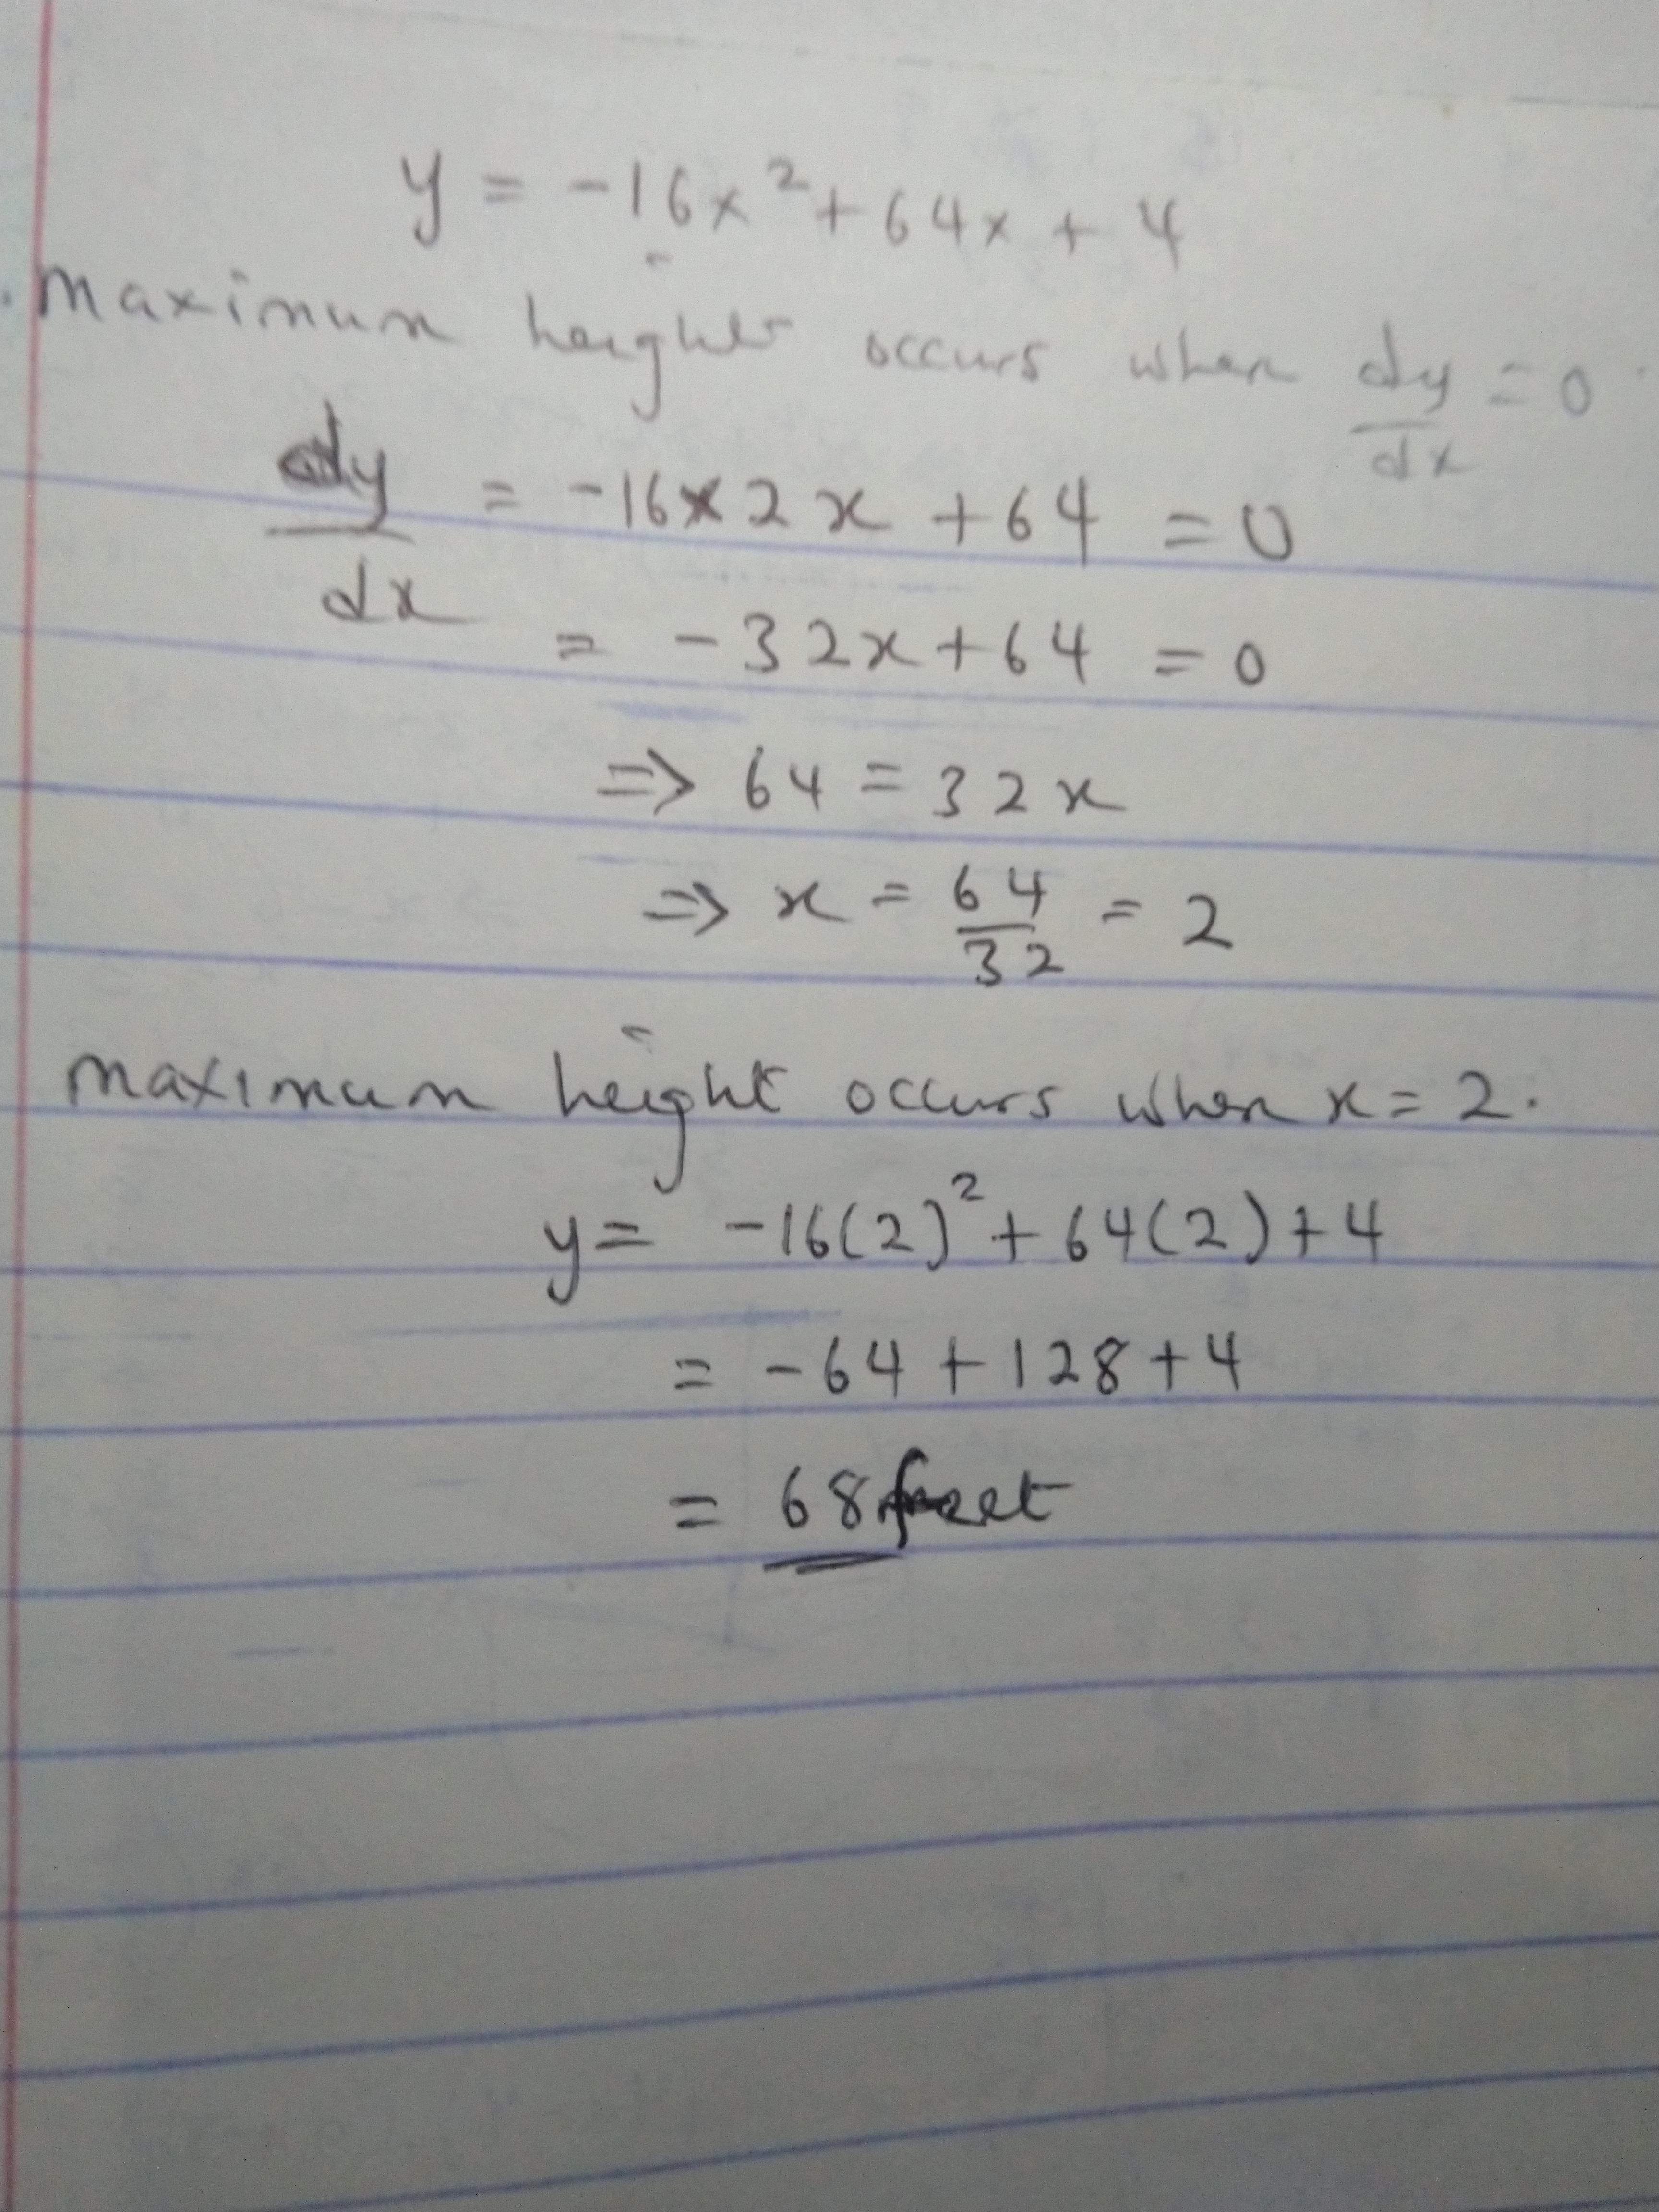 y = -16x² + 64x + 4
Maximum height occurs when dy/dx = 0.
dy/dx = -16 × 2x + 64 = 0
= -32x + 64 = 0
⇒ 64 = 32x
⇒ x = 64/32 = 2
Maximum height occurs when x = 2.
y = -16(2)² + 64(2) + 4
= -64 + 128 + 4
= 68 feet